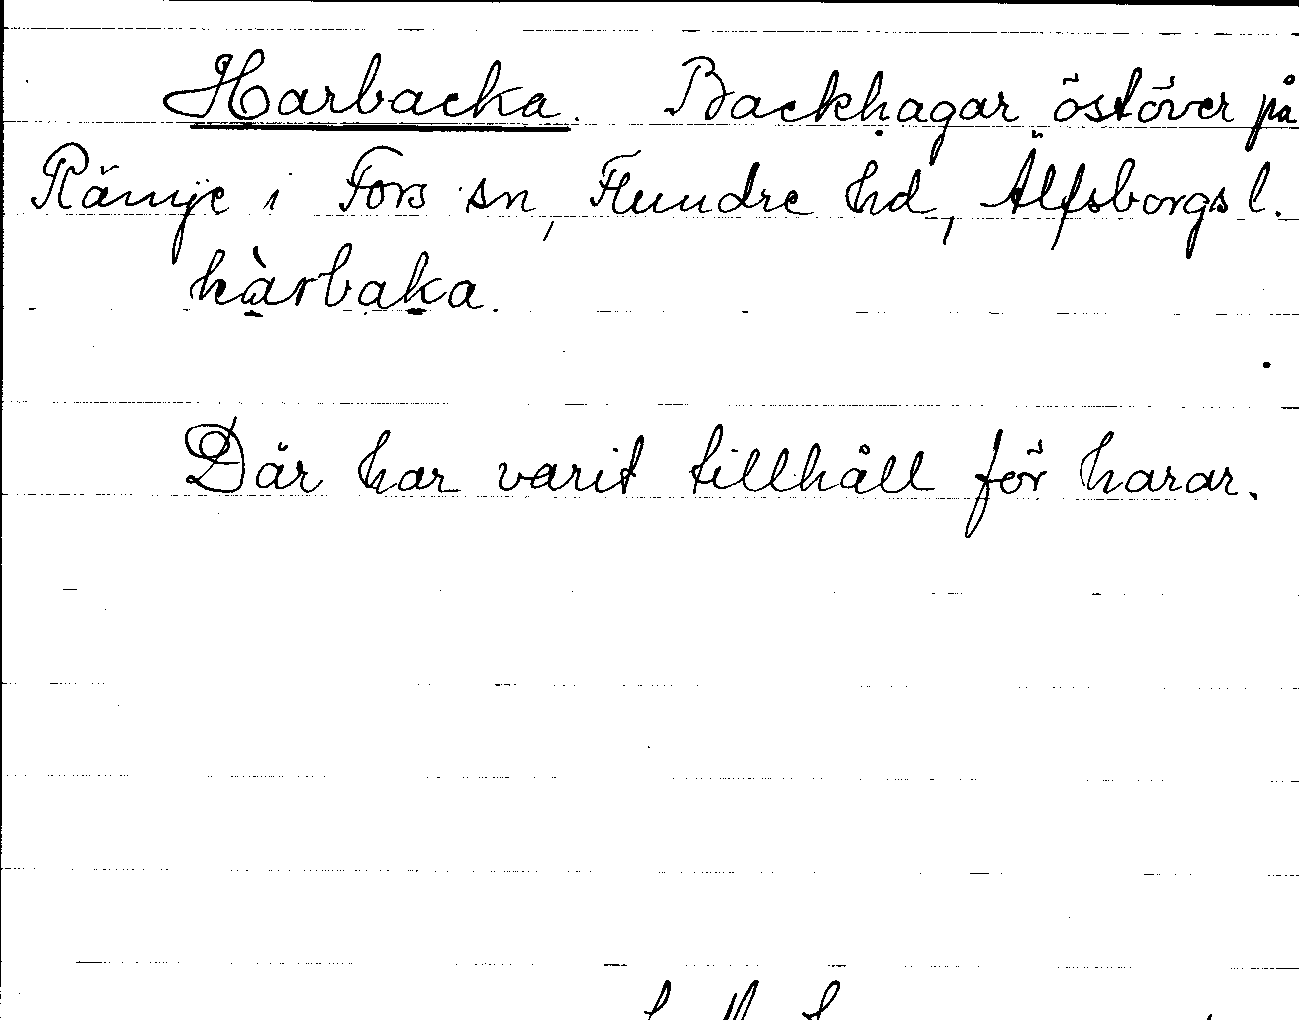 Harbacka. Backhagar östöver på
Rämje i Fors sn, Flundre hd, Älfsborgs l.
hàrbaka.
Där har varit tillhåll för harar.